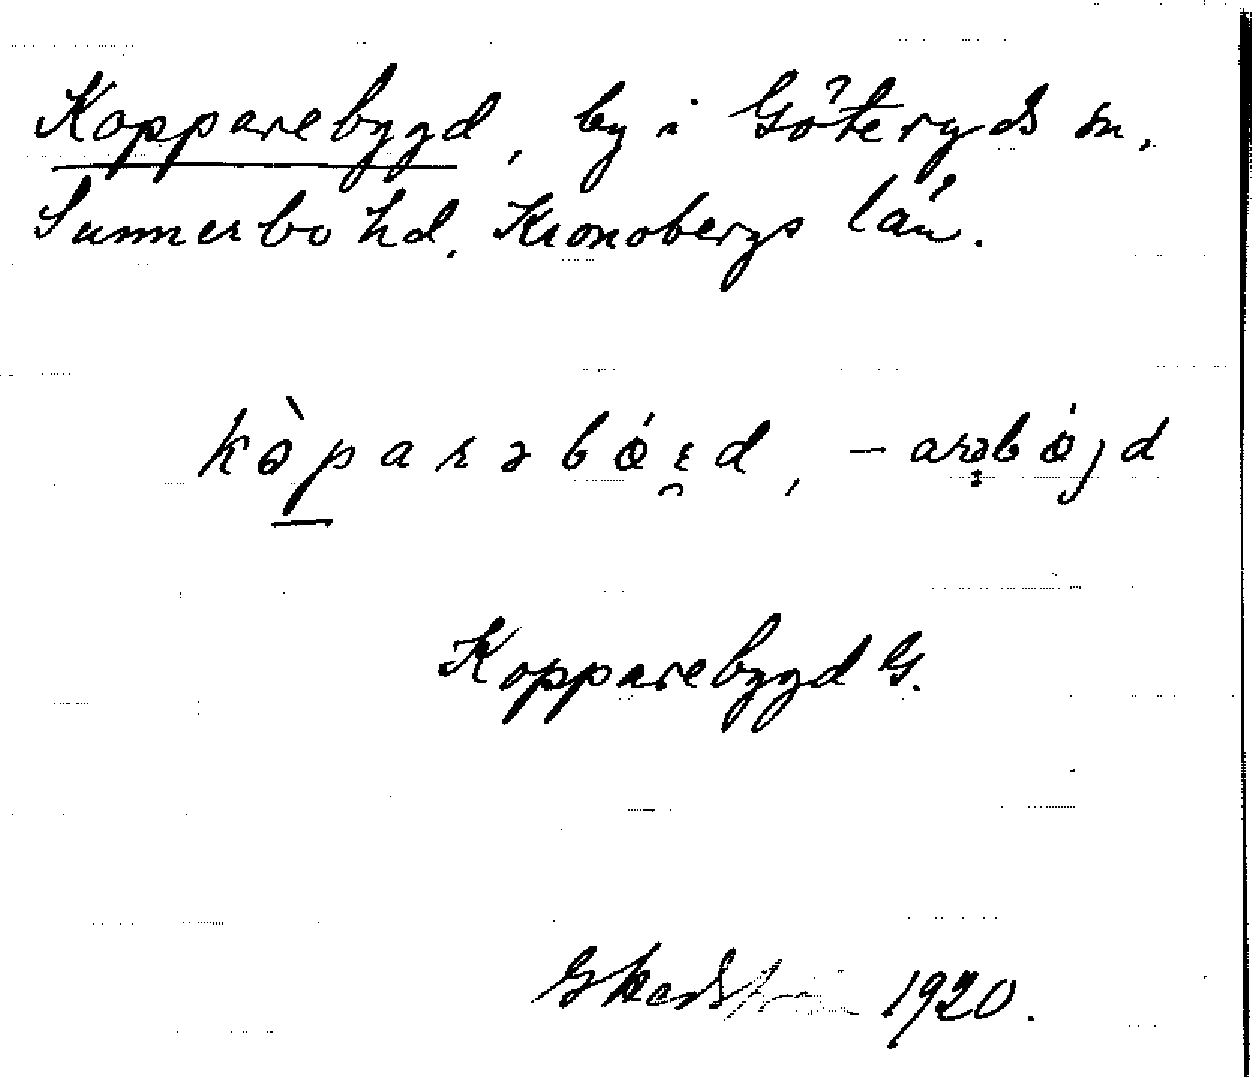 Kopparebygd, by i Göteryds sn,
Sunnerbo hd. Kronobergs län.
kòparəbǿɛd, – arəbǿjd
Kopparebygd G.
1920.